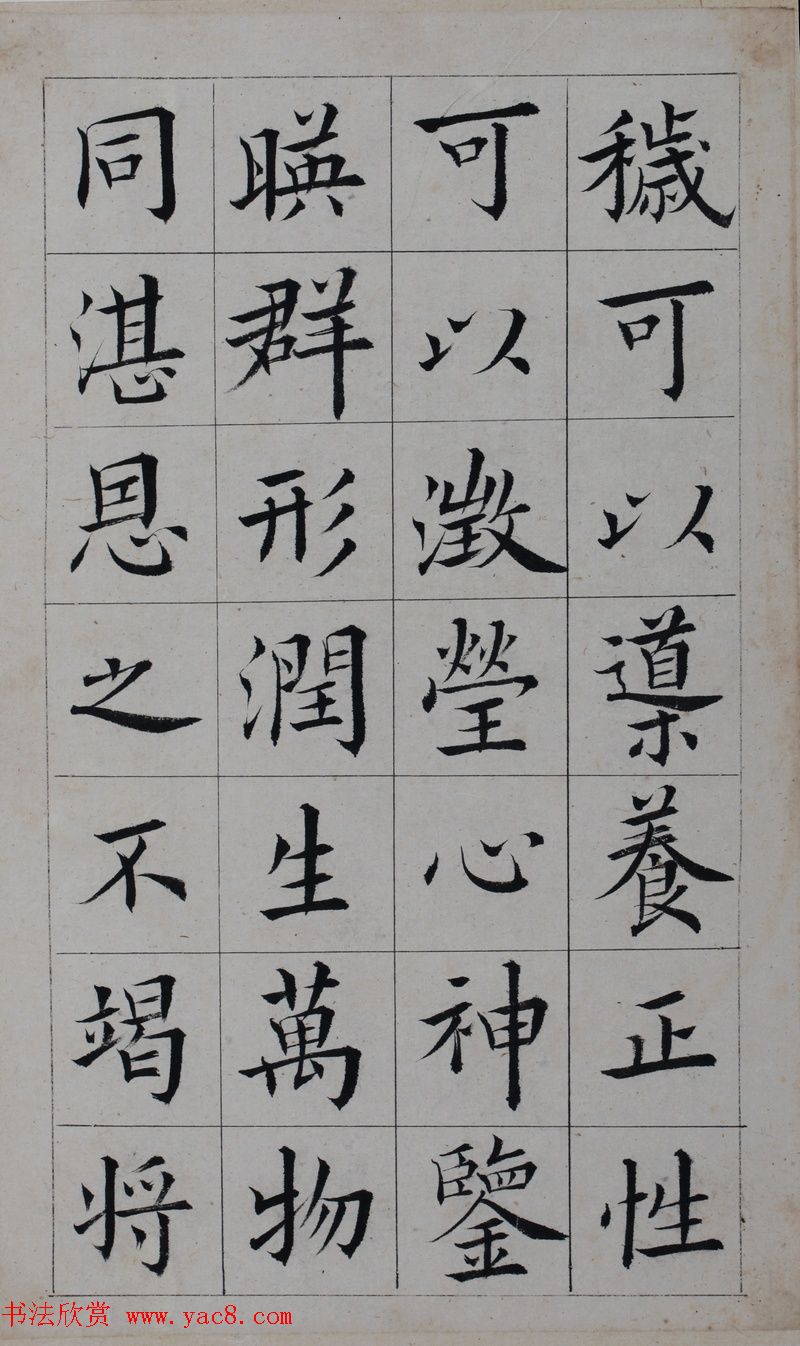 穢可以導養正性
可以澂瑩心神鑒
暎群形潤生萬物
同湛恩之不竭将
书法欣赏 www.yac8.com